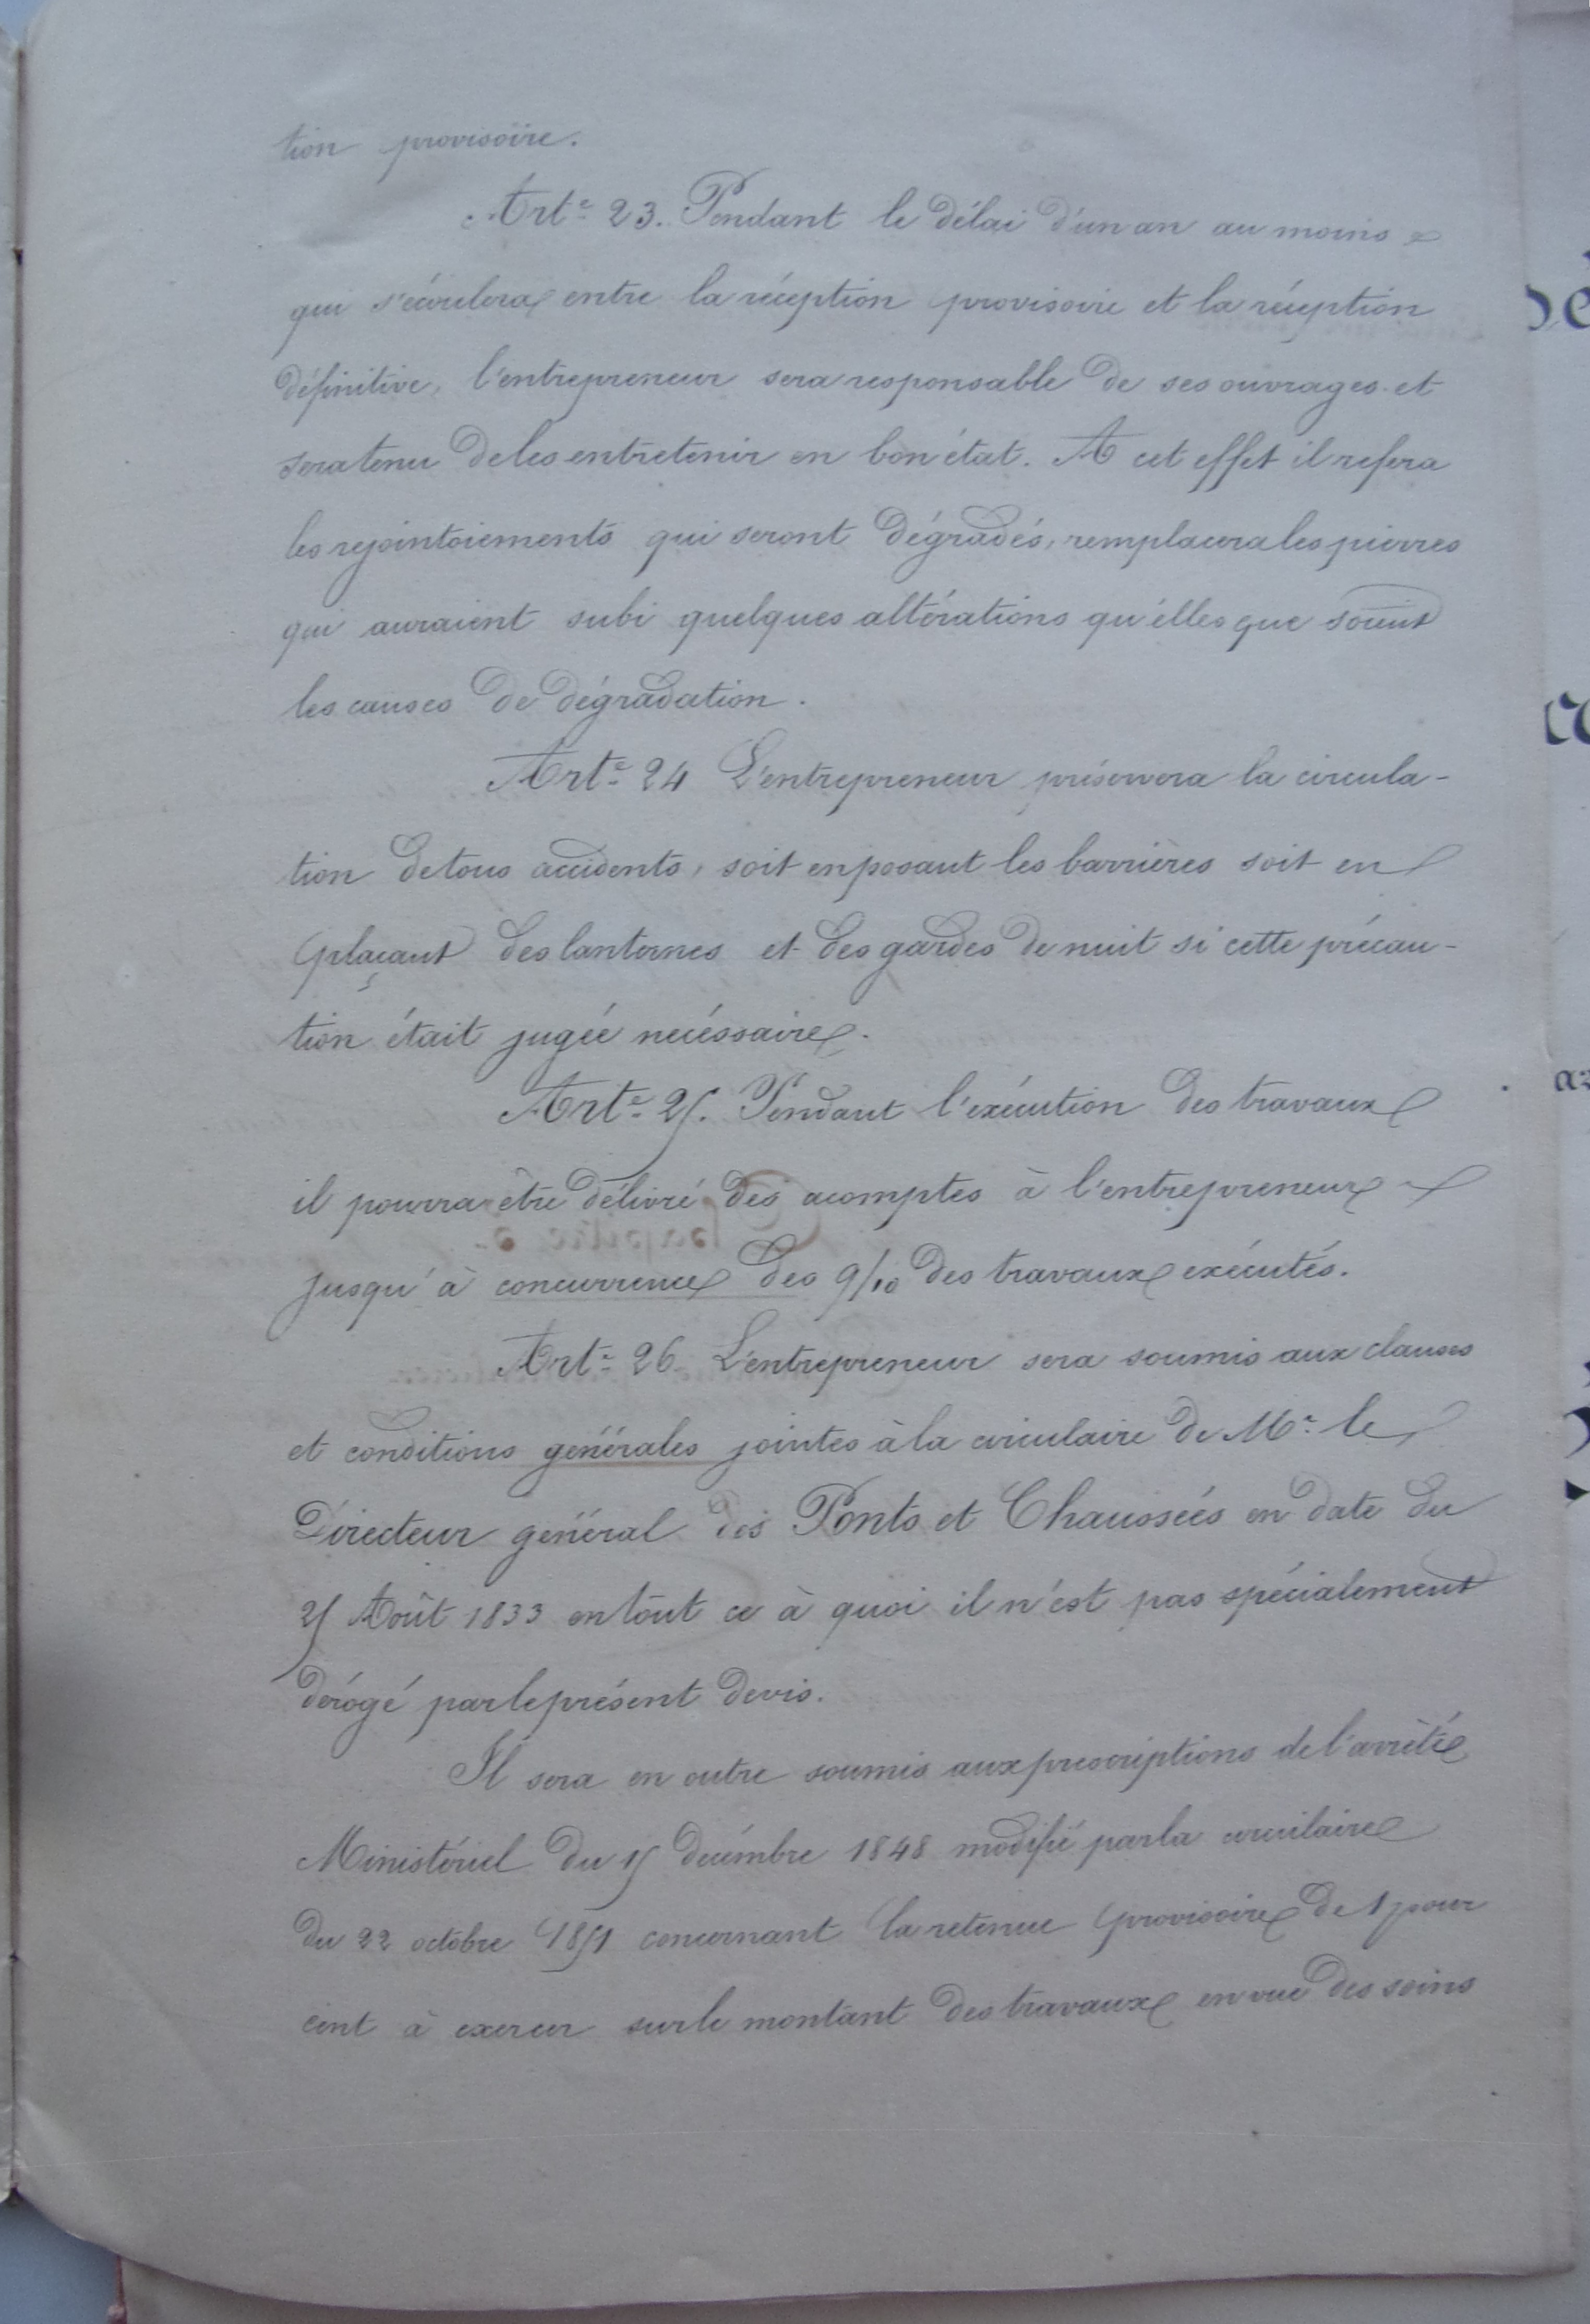 tion provisoire.
Arte 23. Pendant le délai d'un an au moins
qui s'écoulera entre la réception provisoire et la réception
définitive, l'entrepreneur sera responsable de ses ouvrages et
sera tenu de les entretenir en bon état. A cet effet il refera
les rejointoiements qui seront dégradés, remplacera les pierres
qui auraient subi quelques altérations qu'elles que soient
les causes de dégradation.
Arte 24 L'entrepreneur préservera la circula-
tion de tous accidents, soit en posant les barrières soit en
plaçant des lanternes et des gardes de nuit si cette précau-
tion était jugée necéssaire.
Arte 25. Pendant l'exécution des travaux
il pourra être délivré des acomptes à l'entrepreneur
jusqu'à concurrence des 9/10 des travaux exécutés.
Arte 26 L'entrepreneur sera soumis aux clauses
et conditions générales jointes à la circulaire de Mr le
Directeur général des Ponts et Chaussées en date du
25 Août 1833 en tout ce à quoi il n'est pas spécialement
dérogé par le présent devis.
Il sera en outre soumis aux prescriptions de l'arrêté
Ministériel du 15 décembre 1848 modifié par la circulaire
du 22 octobre 1851 concernant la retenue provisoire de 1 pour
cent à exercer sur le montant des travaux en vue des soins